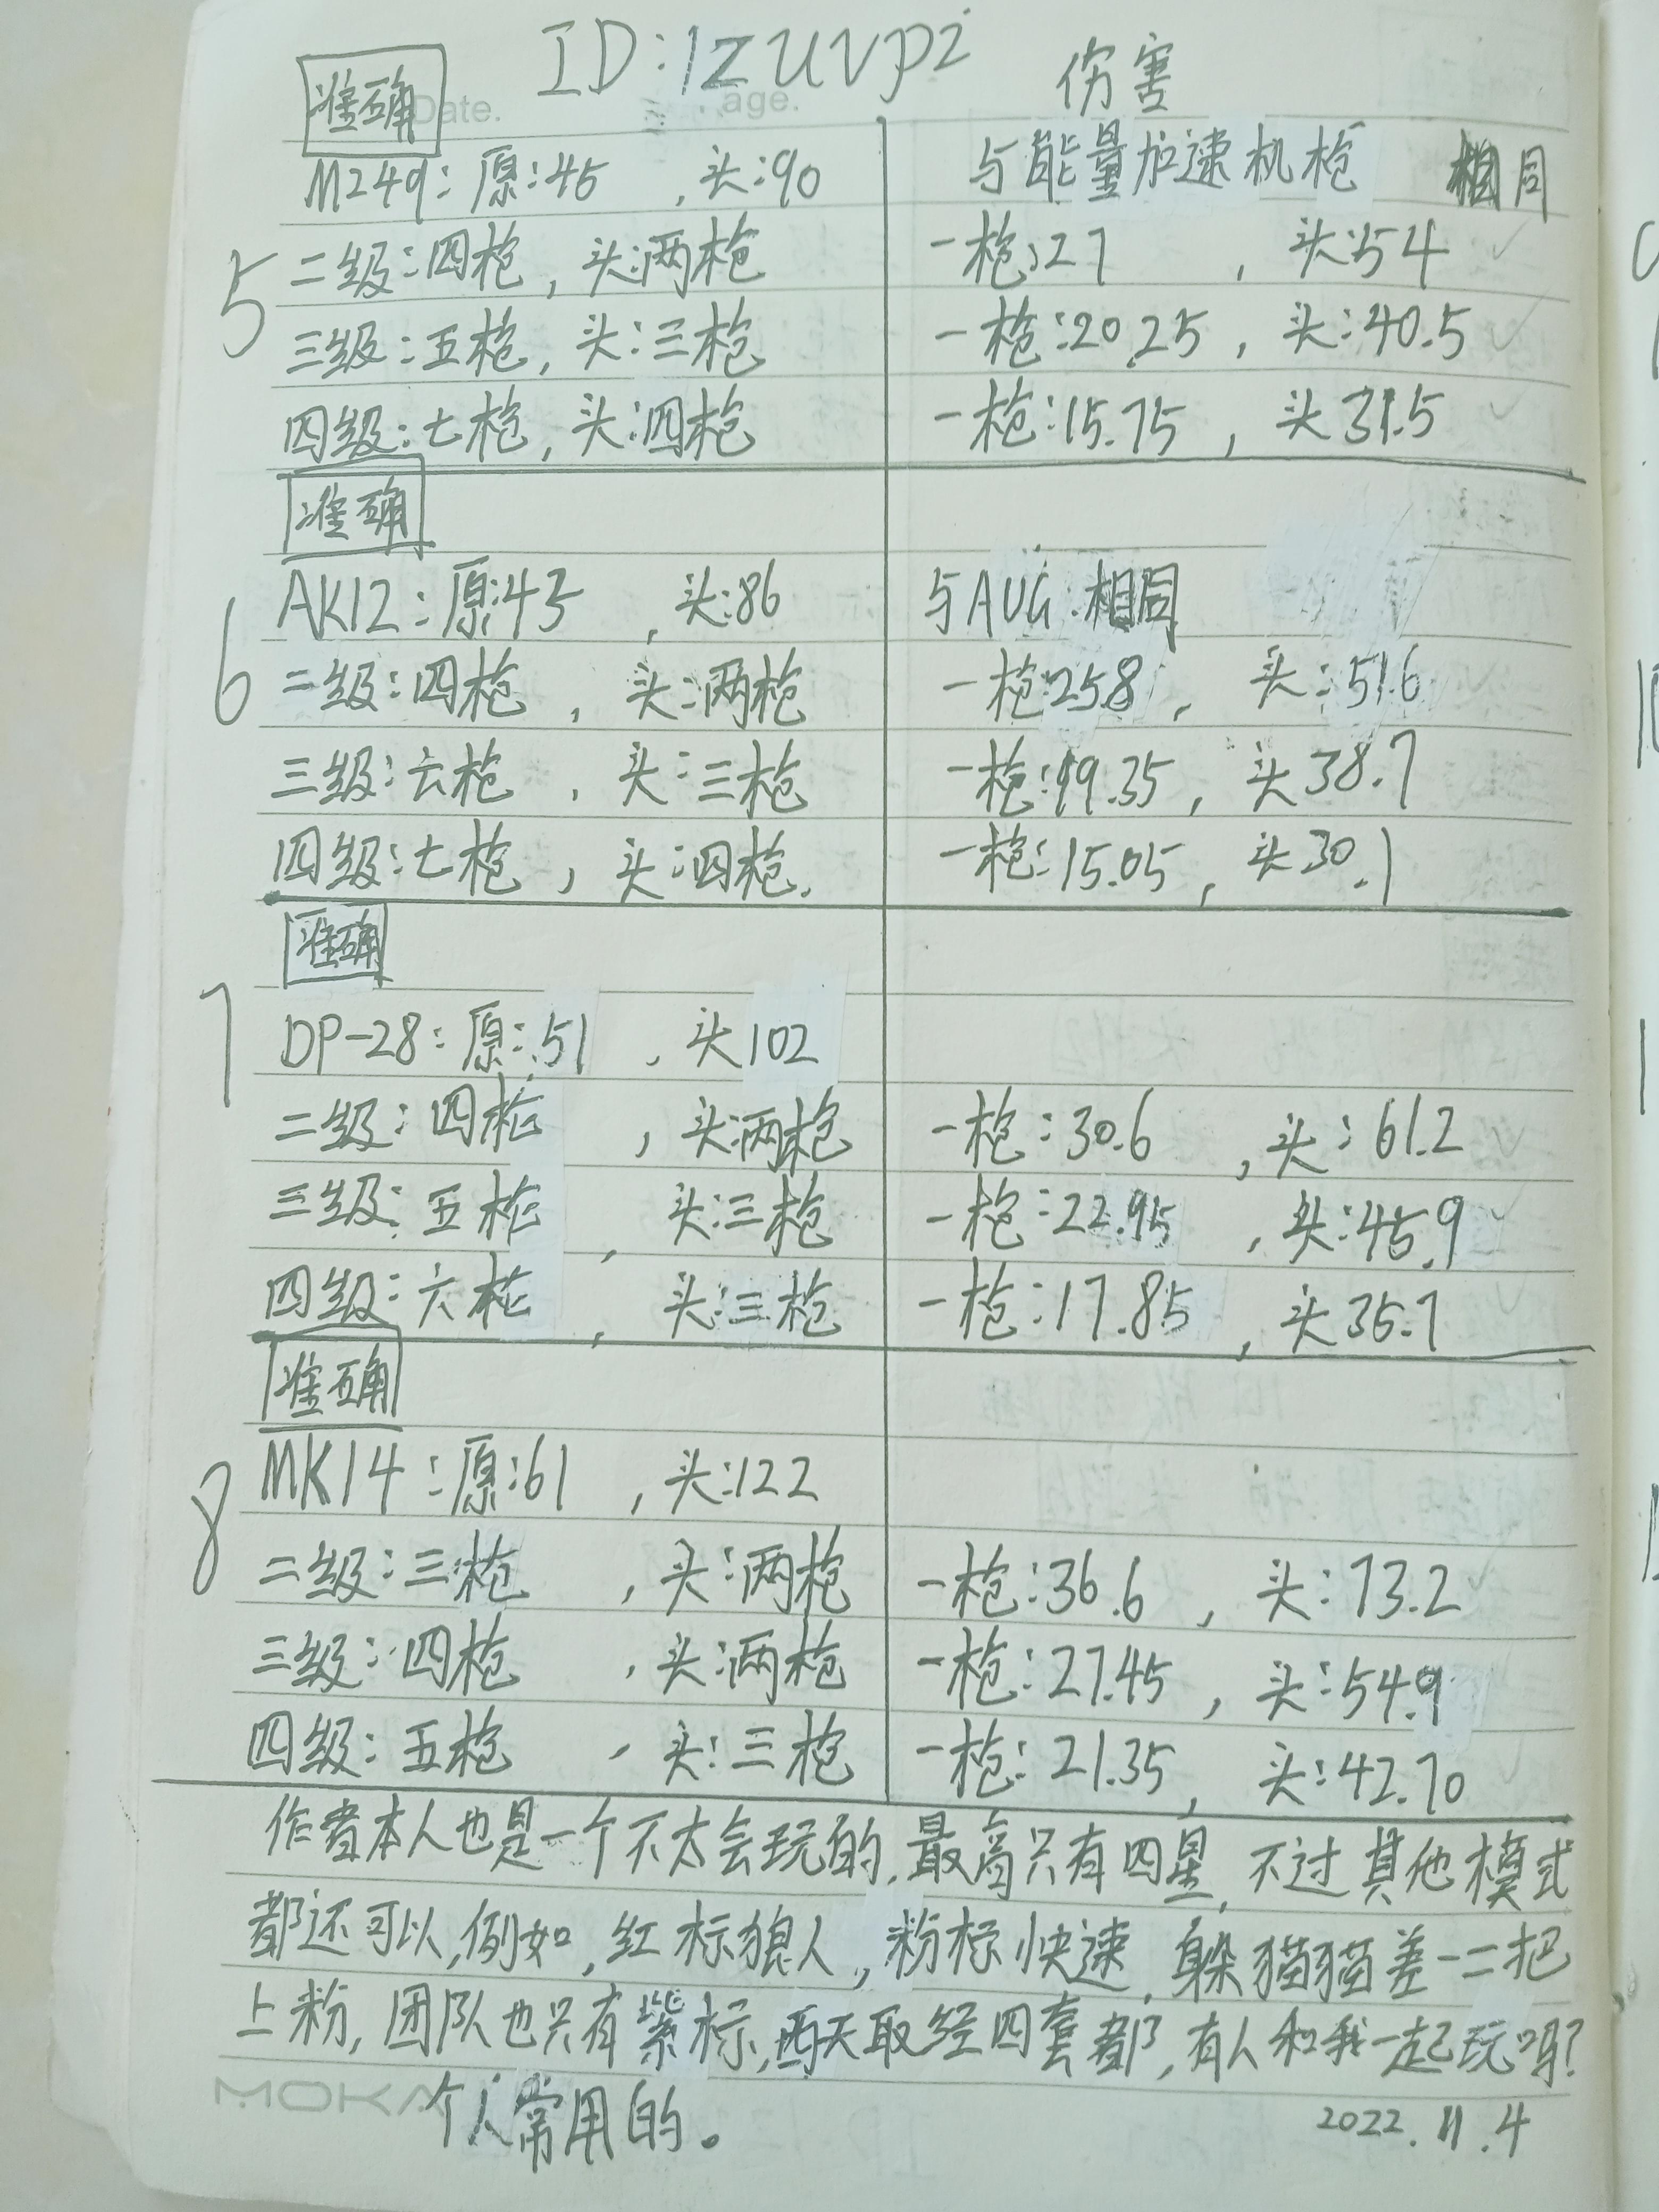 ID:1zuvpi
准确 Date. age. 伤害
M249:原:45,头:90 与能量加速机枪 相同
5 二级:四枪,头:两枪 一枪:27,头:54
三级:五枪,头:三枪 一枪:20.25,头:40.5
四级:七枪,头:四枪 一枪:15.75,头31.5
准确
AK12:原:43,头:86 与AUG:相同
6 二级:四枪,头:两枪 一枪:25.8,头:51.6
三级:六枪,头:三枪 一枪:19.35,头38.7
四级:七枪,头:四枪. 一枪:15.05,头30.1
准确
7 DP-28:原:51,头102
二级:四枪,头:两枪 一枪:30.6,头:61.2
三级:五枪,头:三枪 一枪:22.95,头:45.9
四级:六枪,头:三枪 一枪:17.85,头35.7
准确
8 MK14:原:61,头:122
二级:三枪,头:两枪 一枪:36.6,头:73.2
三级:四枪,头:两枪 一枪:27.45,头:54.9
四级:五枪,头:三枪 一枪:21.35,头:42.70
作者本人也是一个不太会玩的,最高只有四星,不过其他模式
都还可以,例如,红标狼人,粉标快速,躲猫猫差一二把
上粉,团队也只有紫标,西天取经四套都,有人和我一起玩吗?
MOKA 个人常用的。 2022.11.4